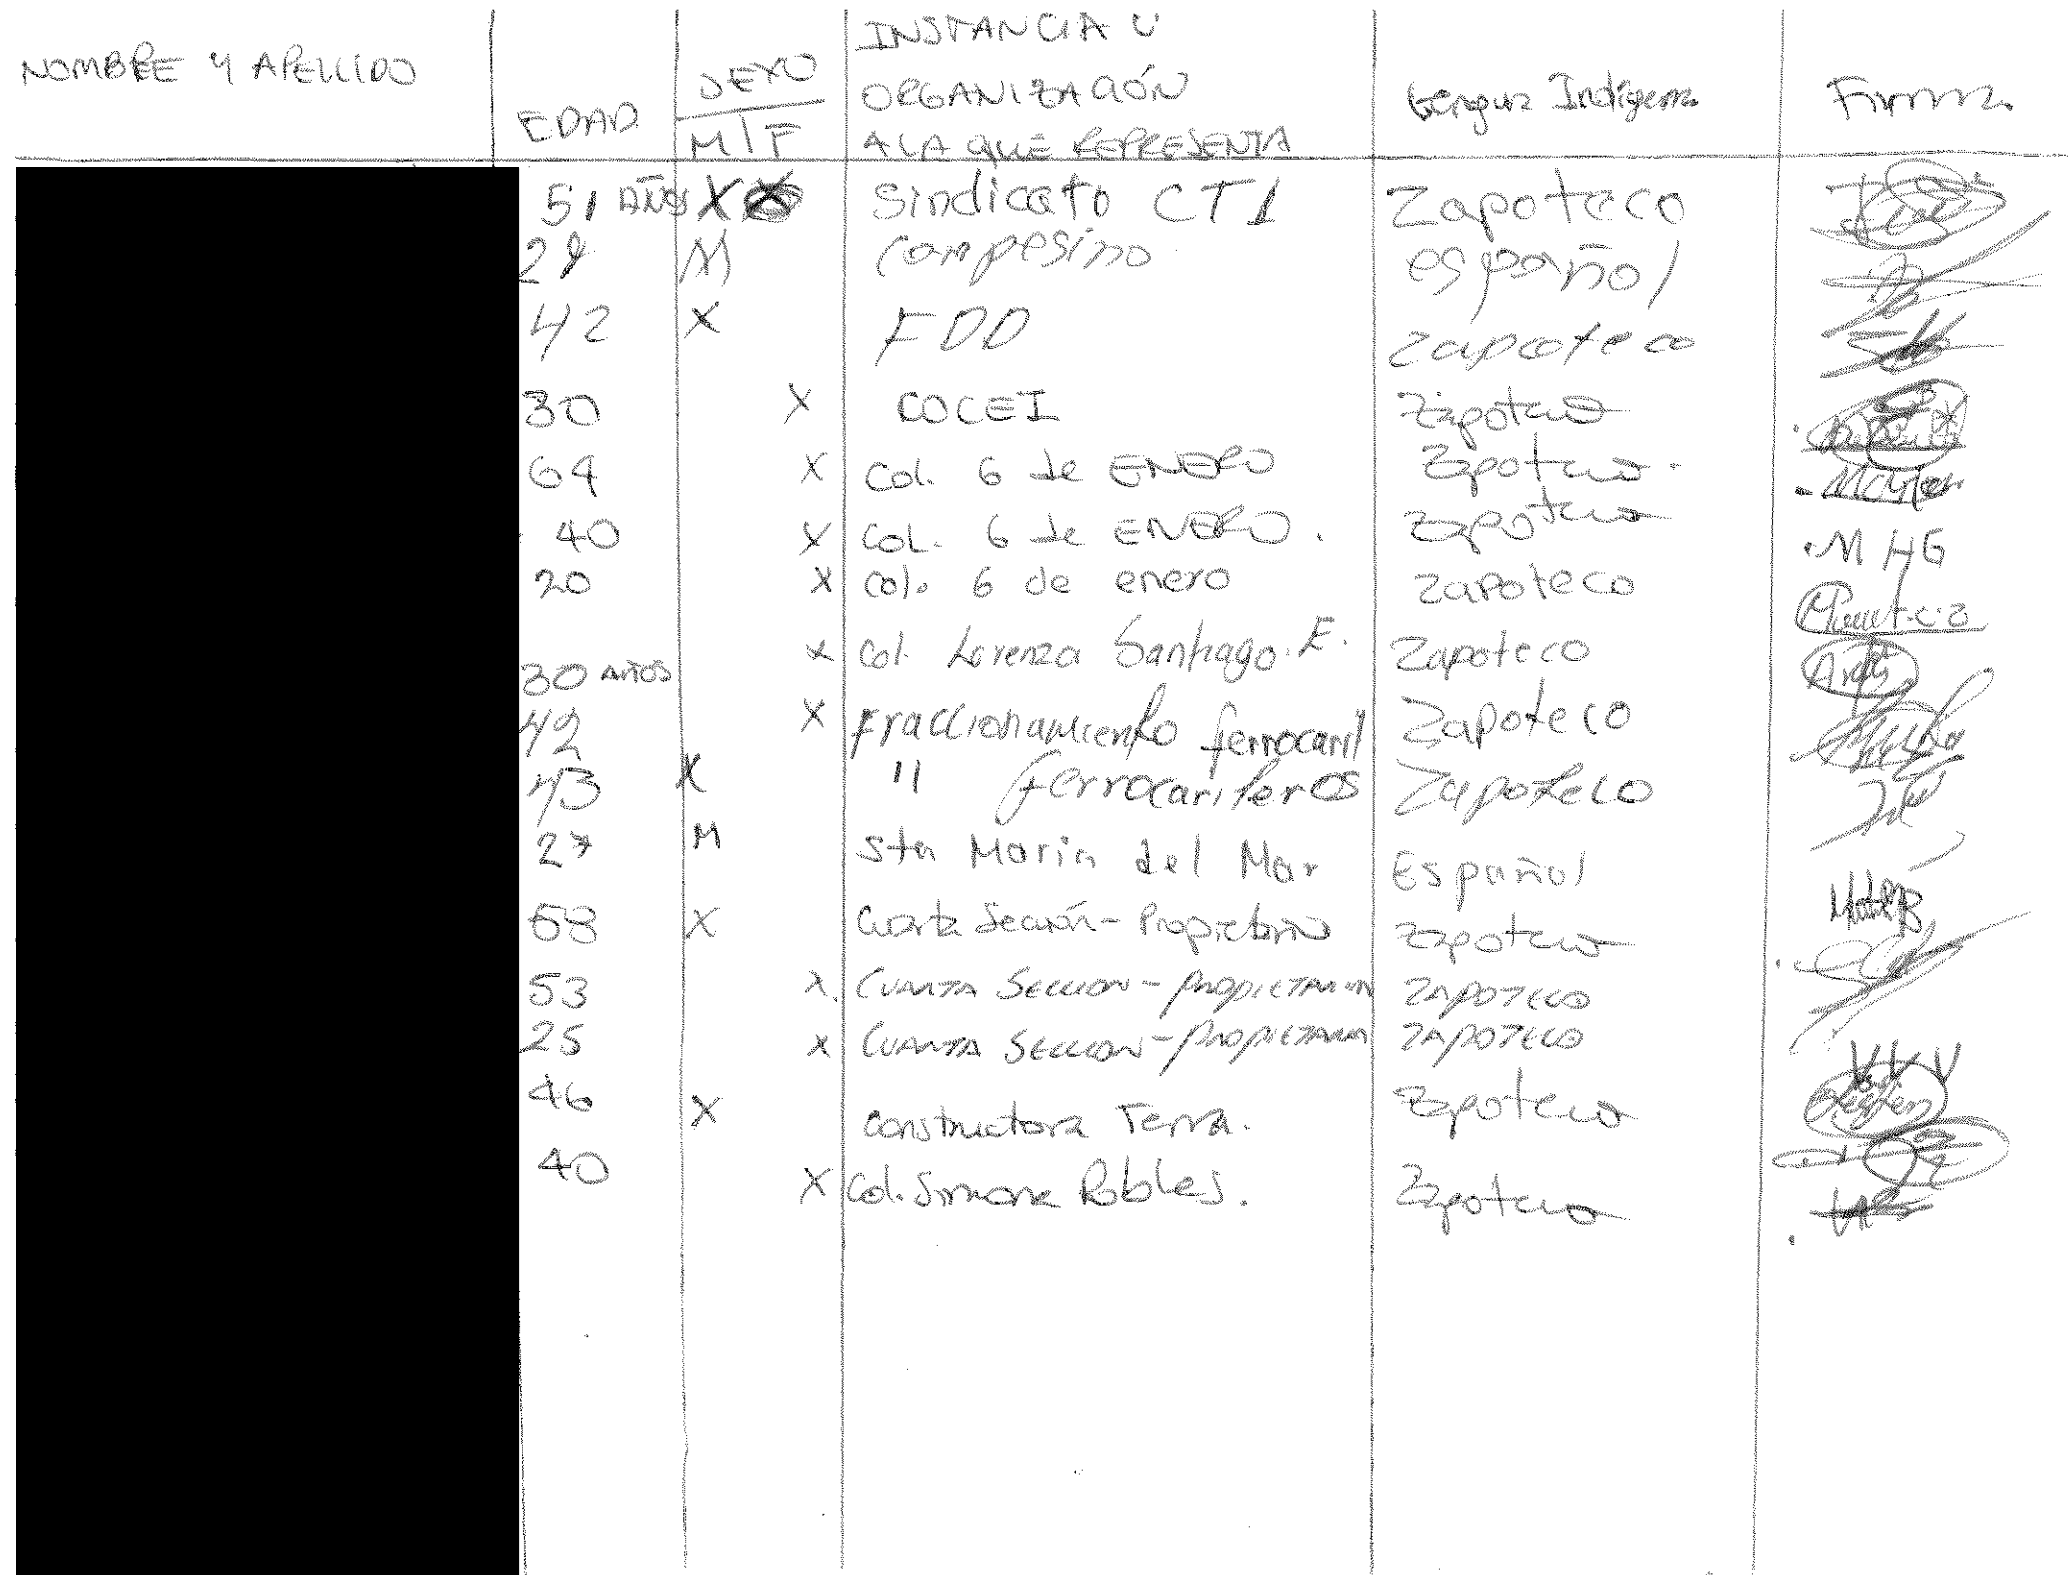 NOMBRE Y APELLIDO EDAD SEXO M F INSTANCIA U ORGANIZACIÓN A LA QUE REPRESENTA Lengua Indígena Firma
51 AÑOS X X Sindicato CTI Zapoteco
M Campesino español
42 X FDD zapoteco
30 X COCEI Zapoteco
64 X Col. 6 de ENERO Zapoteco.
40 X COL. 6 de ENERO. Zapoteco
20 X Col. 6 de enero zapoteco M HG
30 AÑOS X Col. Lorenza Santiago. E. Zapoteco
42 X Fraccionamiento ferrocaril Zapoteco
43 X " ferrocarileros Zapoteco
27 M Sta Maria del Mar Español
58 X Cuarta Sección - Propietario Zapoteco
53 X. CUARTA SECCION - PROPIETARIA ZAPOTECO
25 X CUARTA SECCION - PROPIETARIA ZAPOTECO
46 X Constructora Terra. Zapoteco V.V.V
40 X Col. Simona Robles. Zapoteco